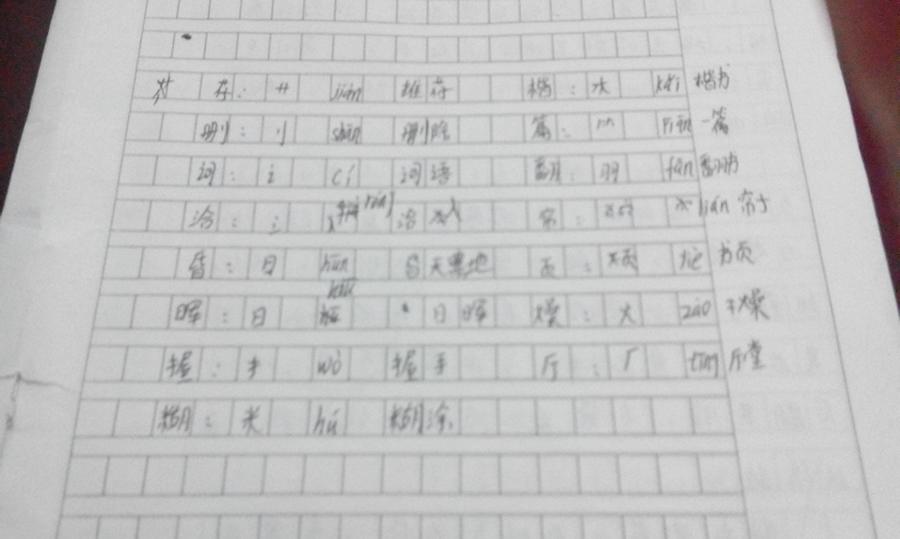 荐：艹 jiàn 推荐 楷：木 kǎi 楷书
删：刂 shān 删除 篇：⺮ piān 一篇
词：讠 cí 词语 翻：羽 fān 翻书
洽：氵 洽 帘： lián 帘子
昏：日 hūn 昏天黑地 页：页 yè 书页
晖：日 日晖 燥：火 zào 干燥
握：扌 wò 握手 厅：厂 tīng 厅堂
糊：米 hú 糊涂